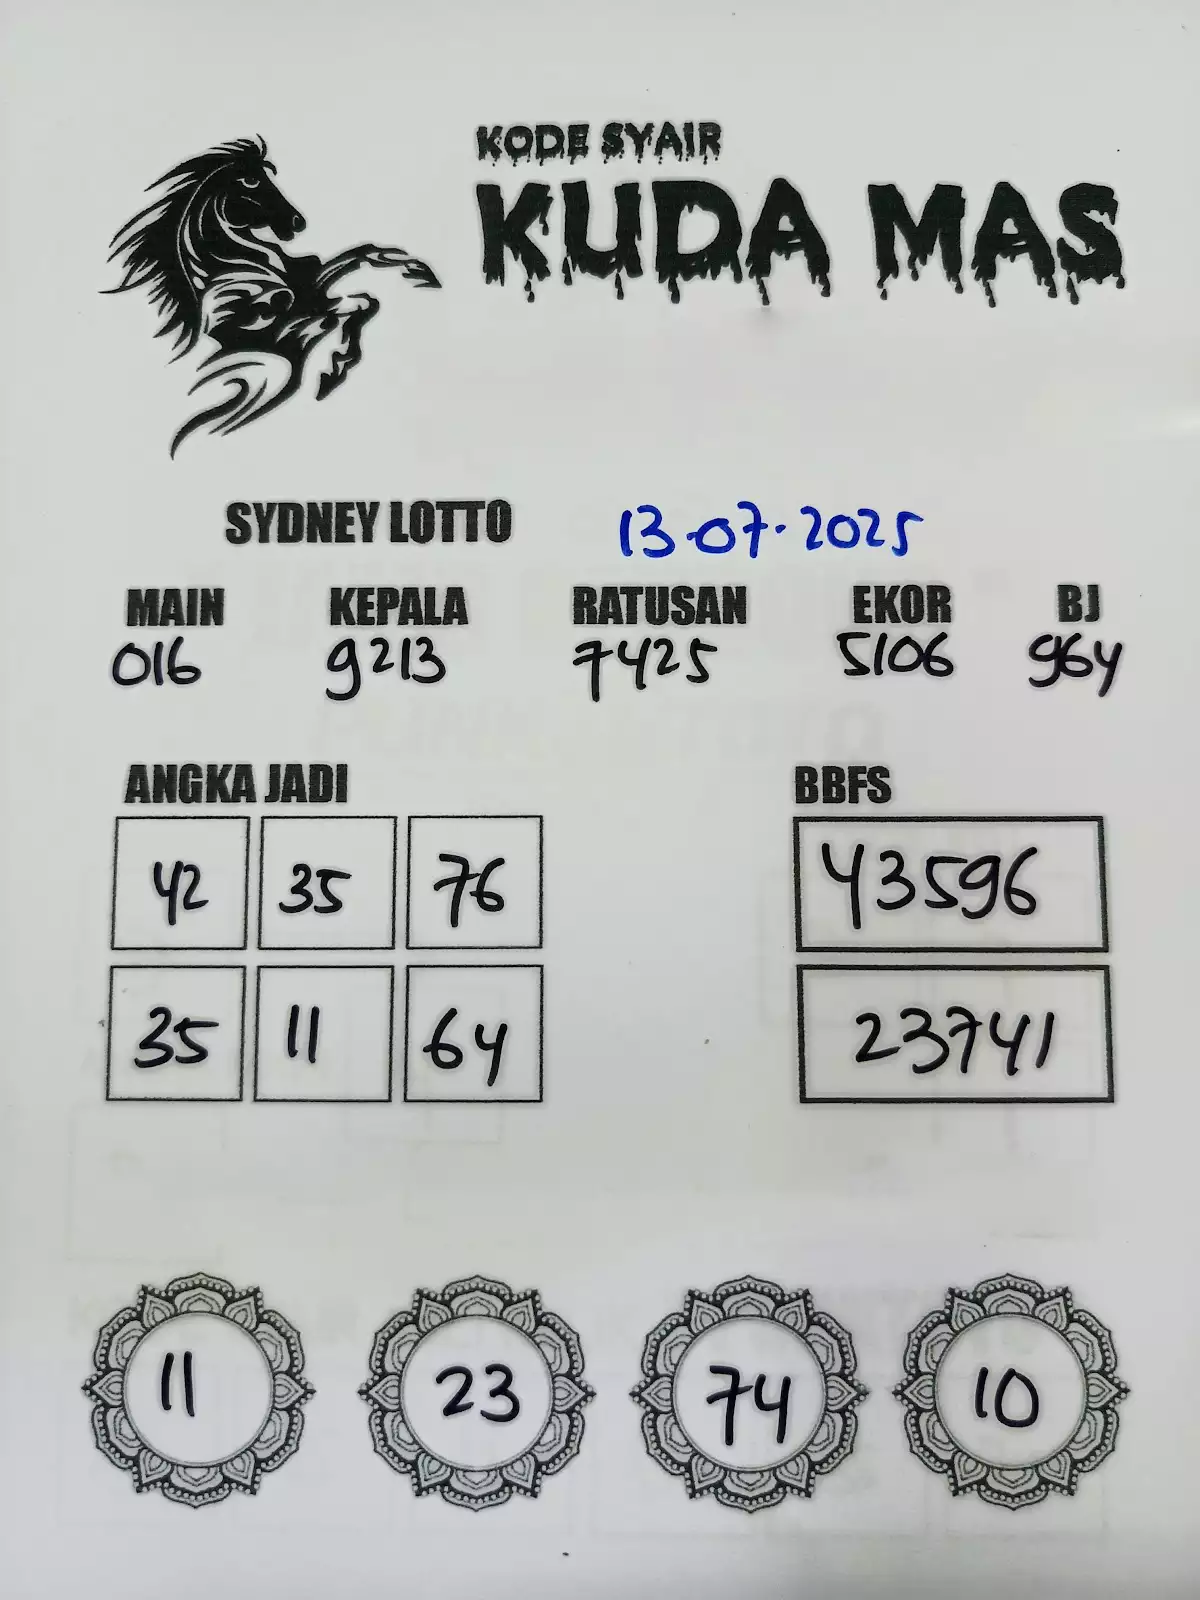 KODE SYAIR
KUDA MAS
SYDNEY LOTTO 13-07-2025
MAIN KEPALA RATUSAN EKOR BJ
016 9213 7425 5106 964
ANGKA JADI BBFS
42 35 76 43596
35 11 64 23741
11 23 74 10